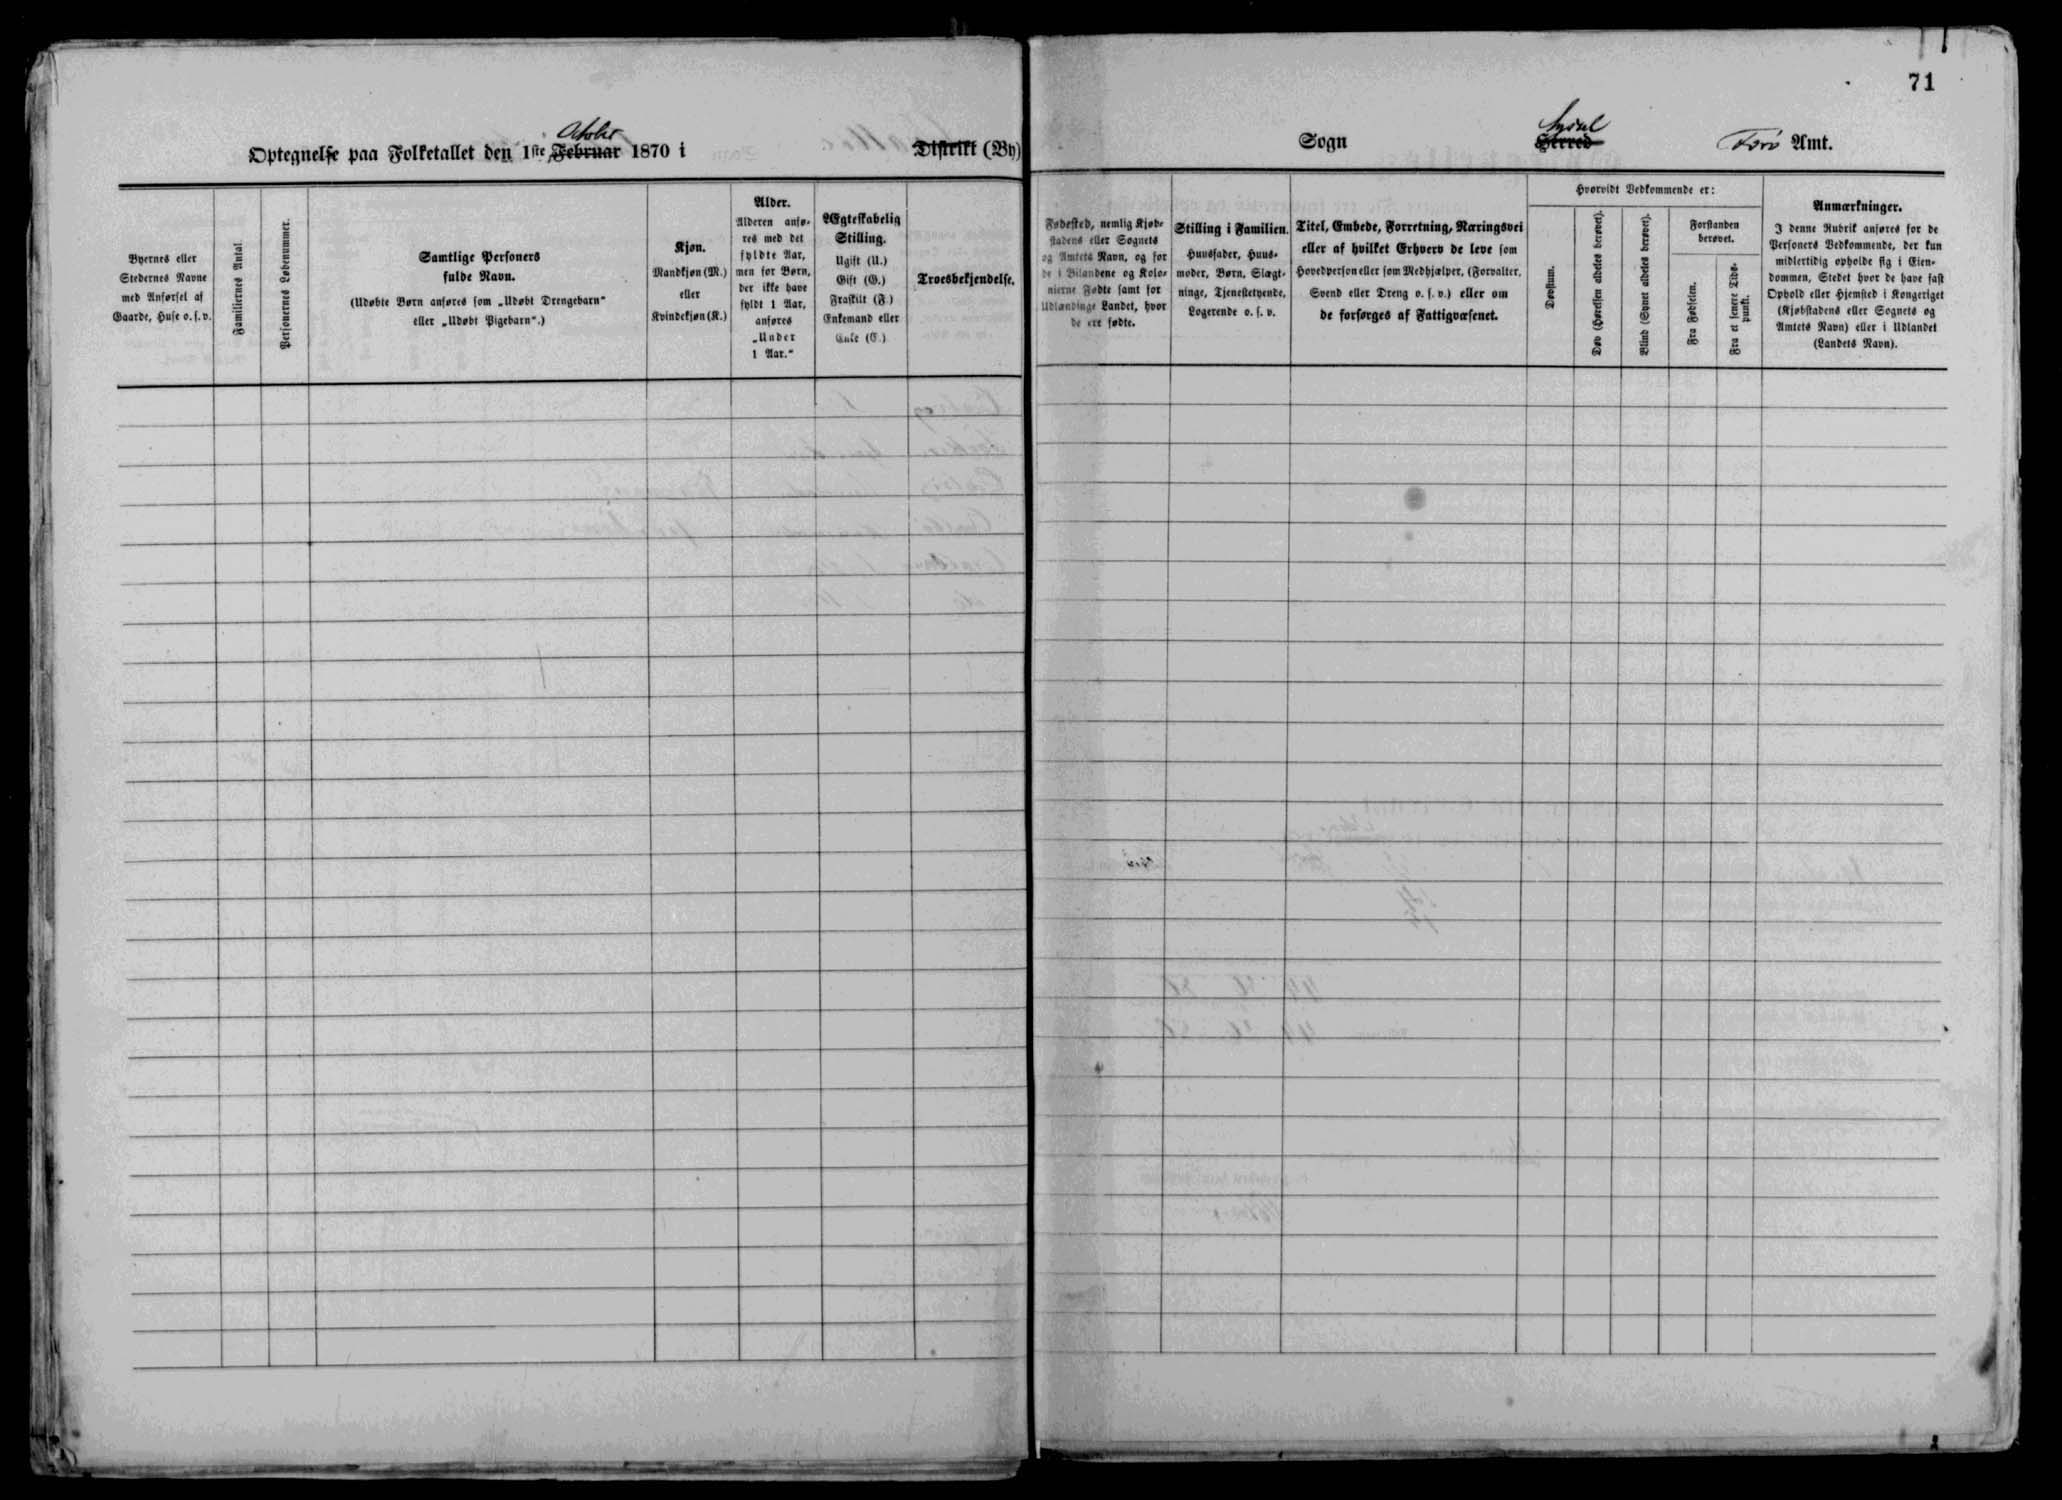 71
Oktober
Optegnelse paa Folketallet den 1ste Februar 1870 i Distrikt (By)
Sogn
Syssel
Herred
Færø Amt.
Byernes eller
Stedernes Navne
med Anførsel af
Gaarde, Huse o. s. v.
Familiernes Antal.
Personernes Løbenummer.
Samtlige Personers
fulde Navn.
(Udøbte Børn anføres som „Udøbt Drengebarn“
eller „Udøbt Pigebarn“.)
Kjøn.
Mandkjøn (M.)
eller
Kvindekjøn (K.)
Alder.
Alderen anfø-
res med det
fyldte Aar,
men for Børn,
der ikke have
fyldt 1 Aar,
anføres
„Under
1 Aar.“
Ægteskabelig
Stilling.
Ugift (U.)
Gift (G.)
Fraskilt (F.)
Enkemand eller
Enke (E.)
Troesbekjendelse.
Fødested, nemlig Kjøb-
stadens eller Sognets
og Amtets Navn, og for
de i Bilandene og Kolo-
nierne Fødte samt for
Udlændinge Landet, hvor
de ere fødte.
Stilling i Familien.
Huusfader, Huus-
moder, Børn, Slægt-
ninge, Tjenestetyende,
Logerende o. s. v.
Titel, Embede, Forretning, Næringsvei
eller af hvilket Erhverv de leve som
Hovedperson eller som Medhjælper, (Forvalter,
Svend eller Dreng o. s. v.) eller om
de forsørges af Fattigvæsenet.
Hvorvidt Vedkommende er:
Døvstum.
Døv (Hørelsen aldeles berøvet).
Blind (Synet aldeles berøvet).
Forstanden
berøvet.
Fra Fødselen.
Fra et senere Tids-
punkt.
Anmærkninger.
I denne Rubrik anføres for de
Personers Vedkommende, der kun
midlertidig opholde sig i Eien-
dommen, Stedet hvor de have fast
Ophold eller Hjemsted i Kongeriget
(Kjøbstadens eller Sognets og
Amtets Navn) eller i Udlandet
(Landets Navn).